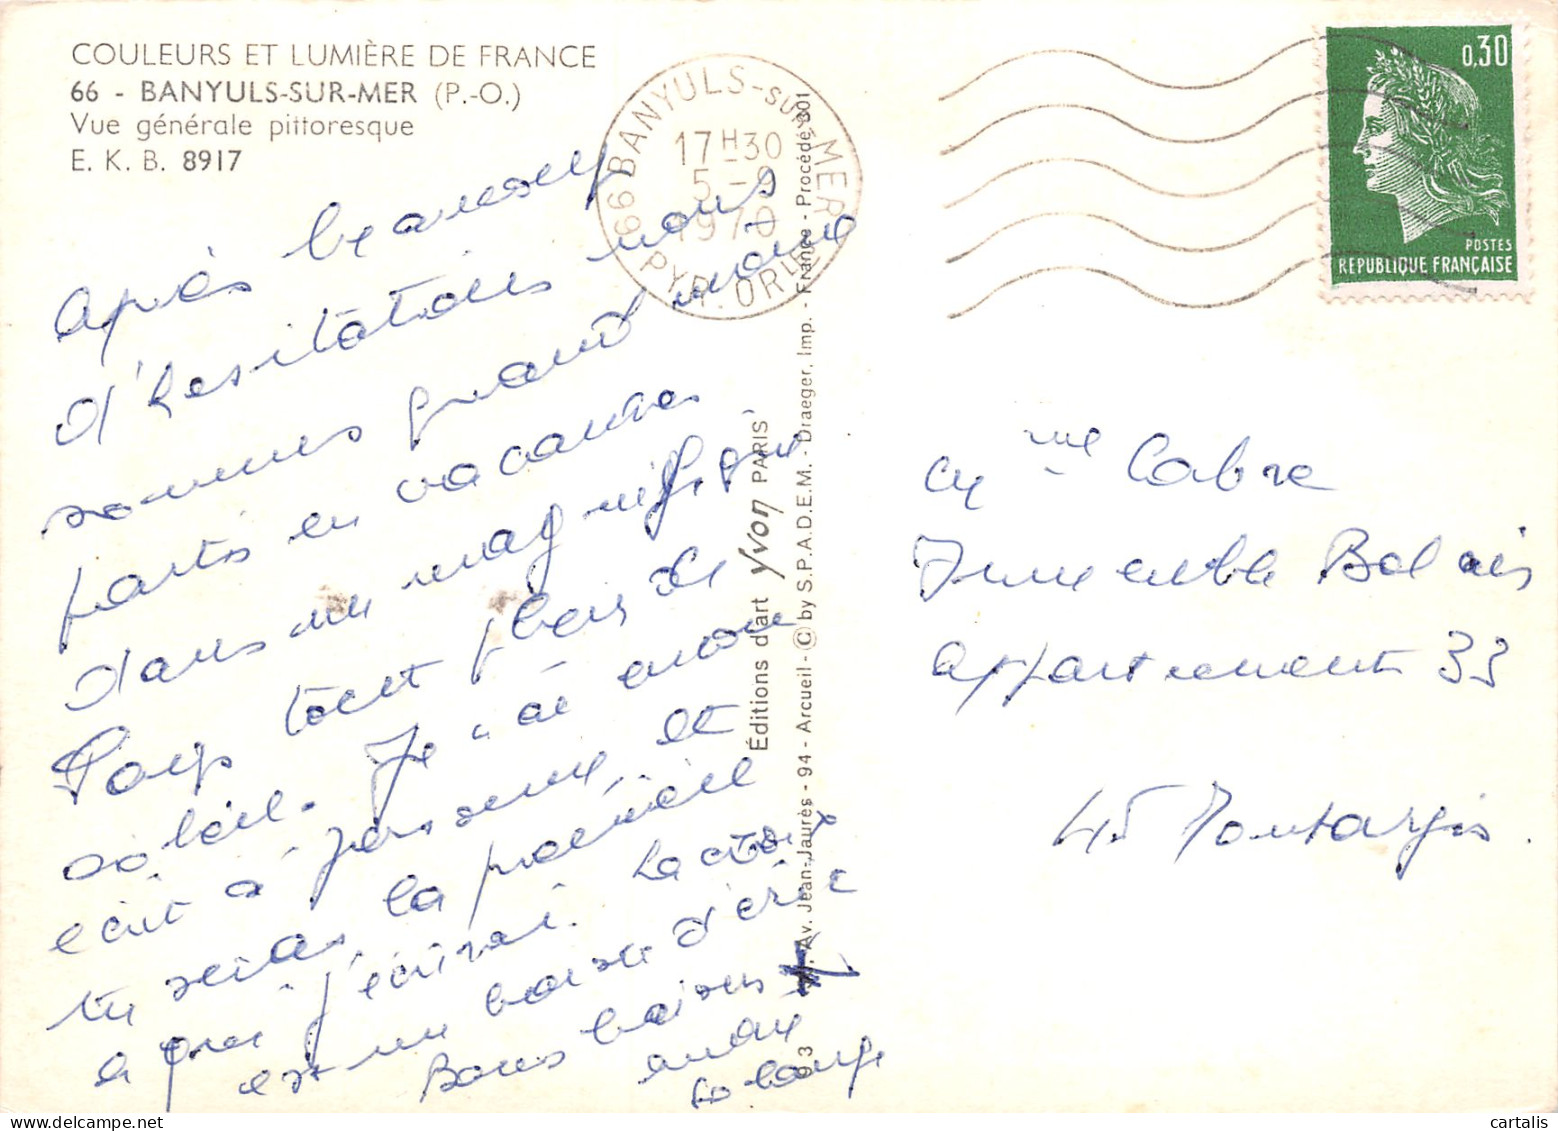 COULEURS ET LUMIÈRE DE FRANCE
66 - BANYULS-SUR-MER (P.-O.)
Vue générale pittoresque
E. K. B. 8917
66 BANYULS-SUR-MER
17H30
5 -9
1970
PYR. ORIE
0,30
POSTES
REPUBLIQUE FRANÇAISE
Après beaucoup
d'hesitations nous
sommes quand même
partis en vacances
dans un magnifique
tout plein de
soleil. Je n'ai encore
écrit à personne, et
tu seras la première
a qui j'écrirai. La croix
est un baiser d'éric
Bons baisers X
andré
Solange
Éditions d'art yvon PARIS
Av. Jean-Jaurès - 94 - Arcueil - © by S.P.A.D.E.M. - Draeger, Imp. - France - Procédé 301
Mme Cabre
Immeuble
appartement 33
45 Montargis.
cartalis